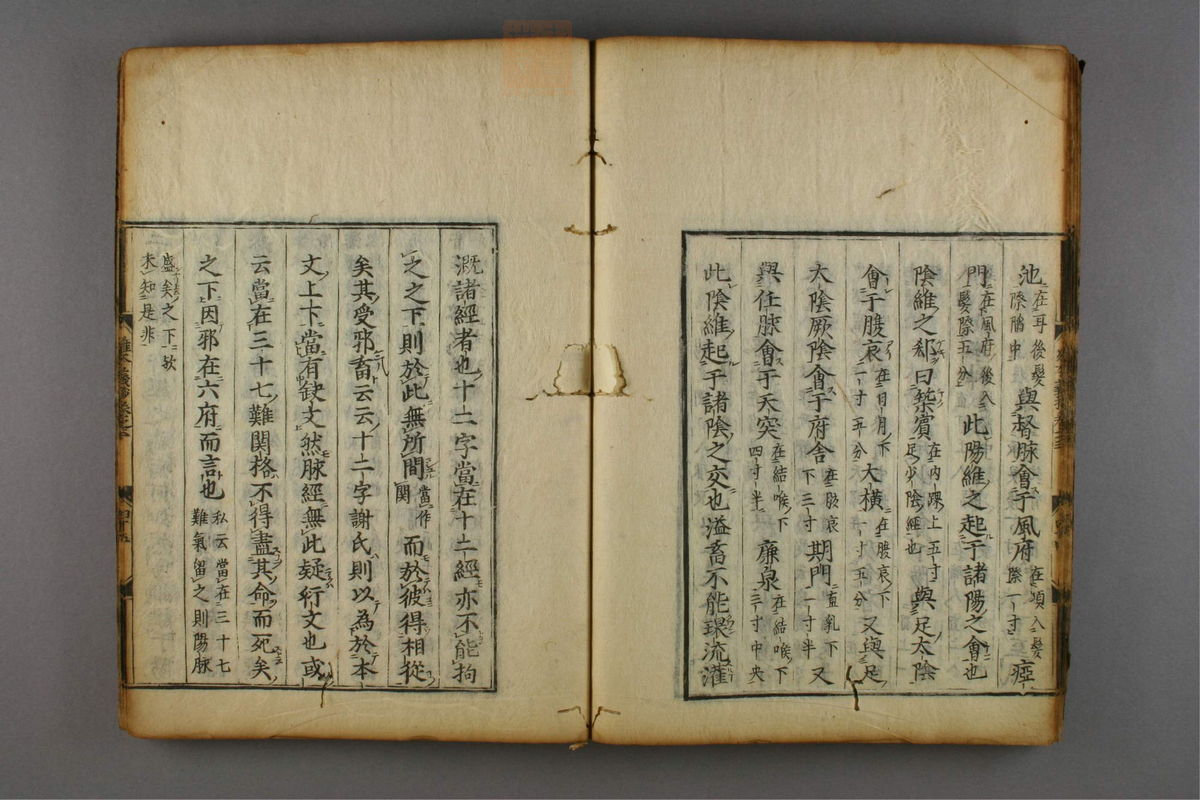 池在耳後髮際脳中與督脉會于風府在項入髮際一寸瘂
門在風府後入髮際五分此陽維之起于諸陽之會也
陰維之郄曰築賓在內踝上五寸足少陰經也與足太陰
會于腹哀在日月下一寸五分大横在腹哀下一寸五分又與足
太陰厥陰會于府舎在腹哀下三寸期門直乳下一寸半又
與任脉會于天突在結喉下四寸半廉泉在結喉下三寸中央
此陰維起于諸陰之交也溢畜不能環流灌
漑諸經者也十二字當在十二經亦不能拘
之之下則於此無所間當作関而於彼得相從
矣其受邪畜云云十二字謝氏則以為於本
文上下當有缺文然脉經無此疑衍文也或
云當在三十七難関格不得盡其命而死矣
之下因邪在六府而言也私云當在三十七難氣留之則陽脉
盛矣之下歟未知是非